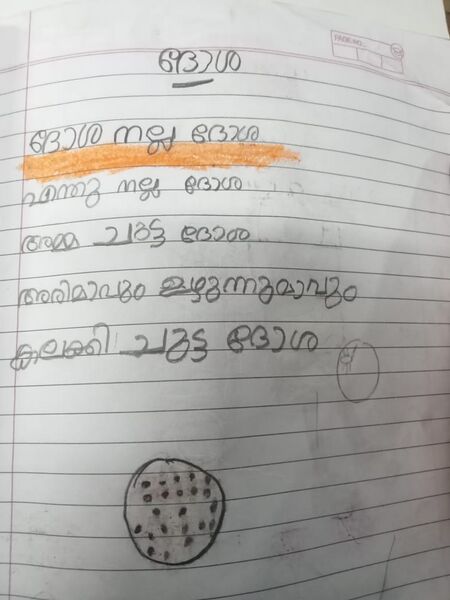 PAGE NO.
ദോശ
ദോശ നല്ല ദോശ
എന്തു നല്ല ദോശ
അമ്മ ചുട്ട ദോശ
അരിമാവും ഉഴുന്നുമാവും
കലക്കി ചുട്ട ദോശ